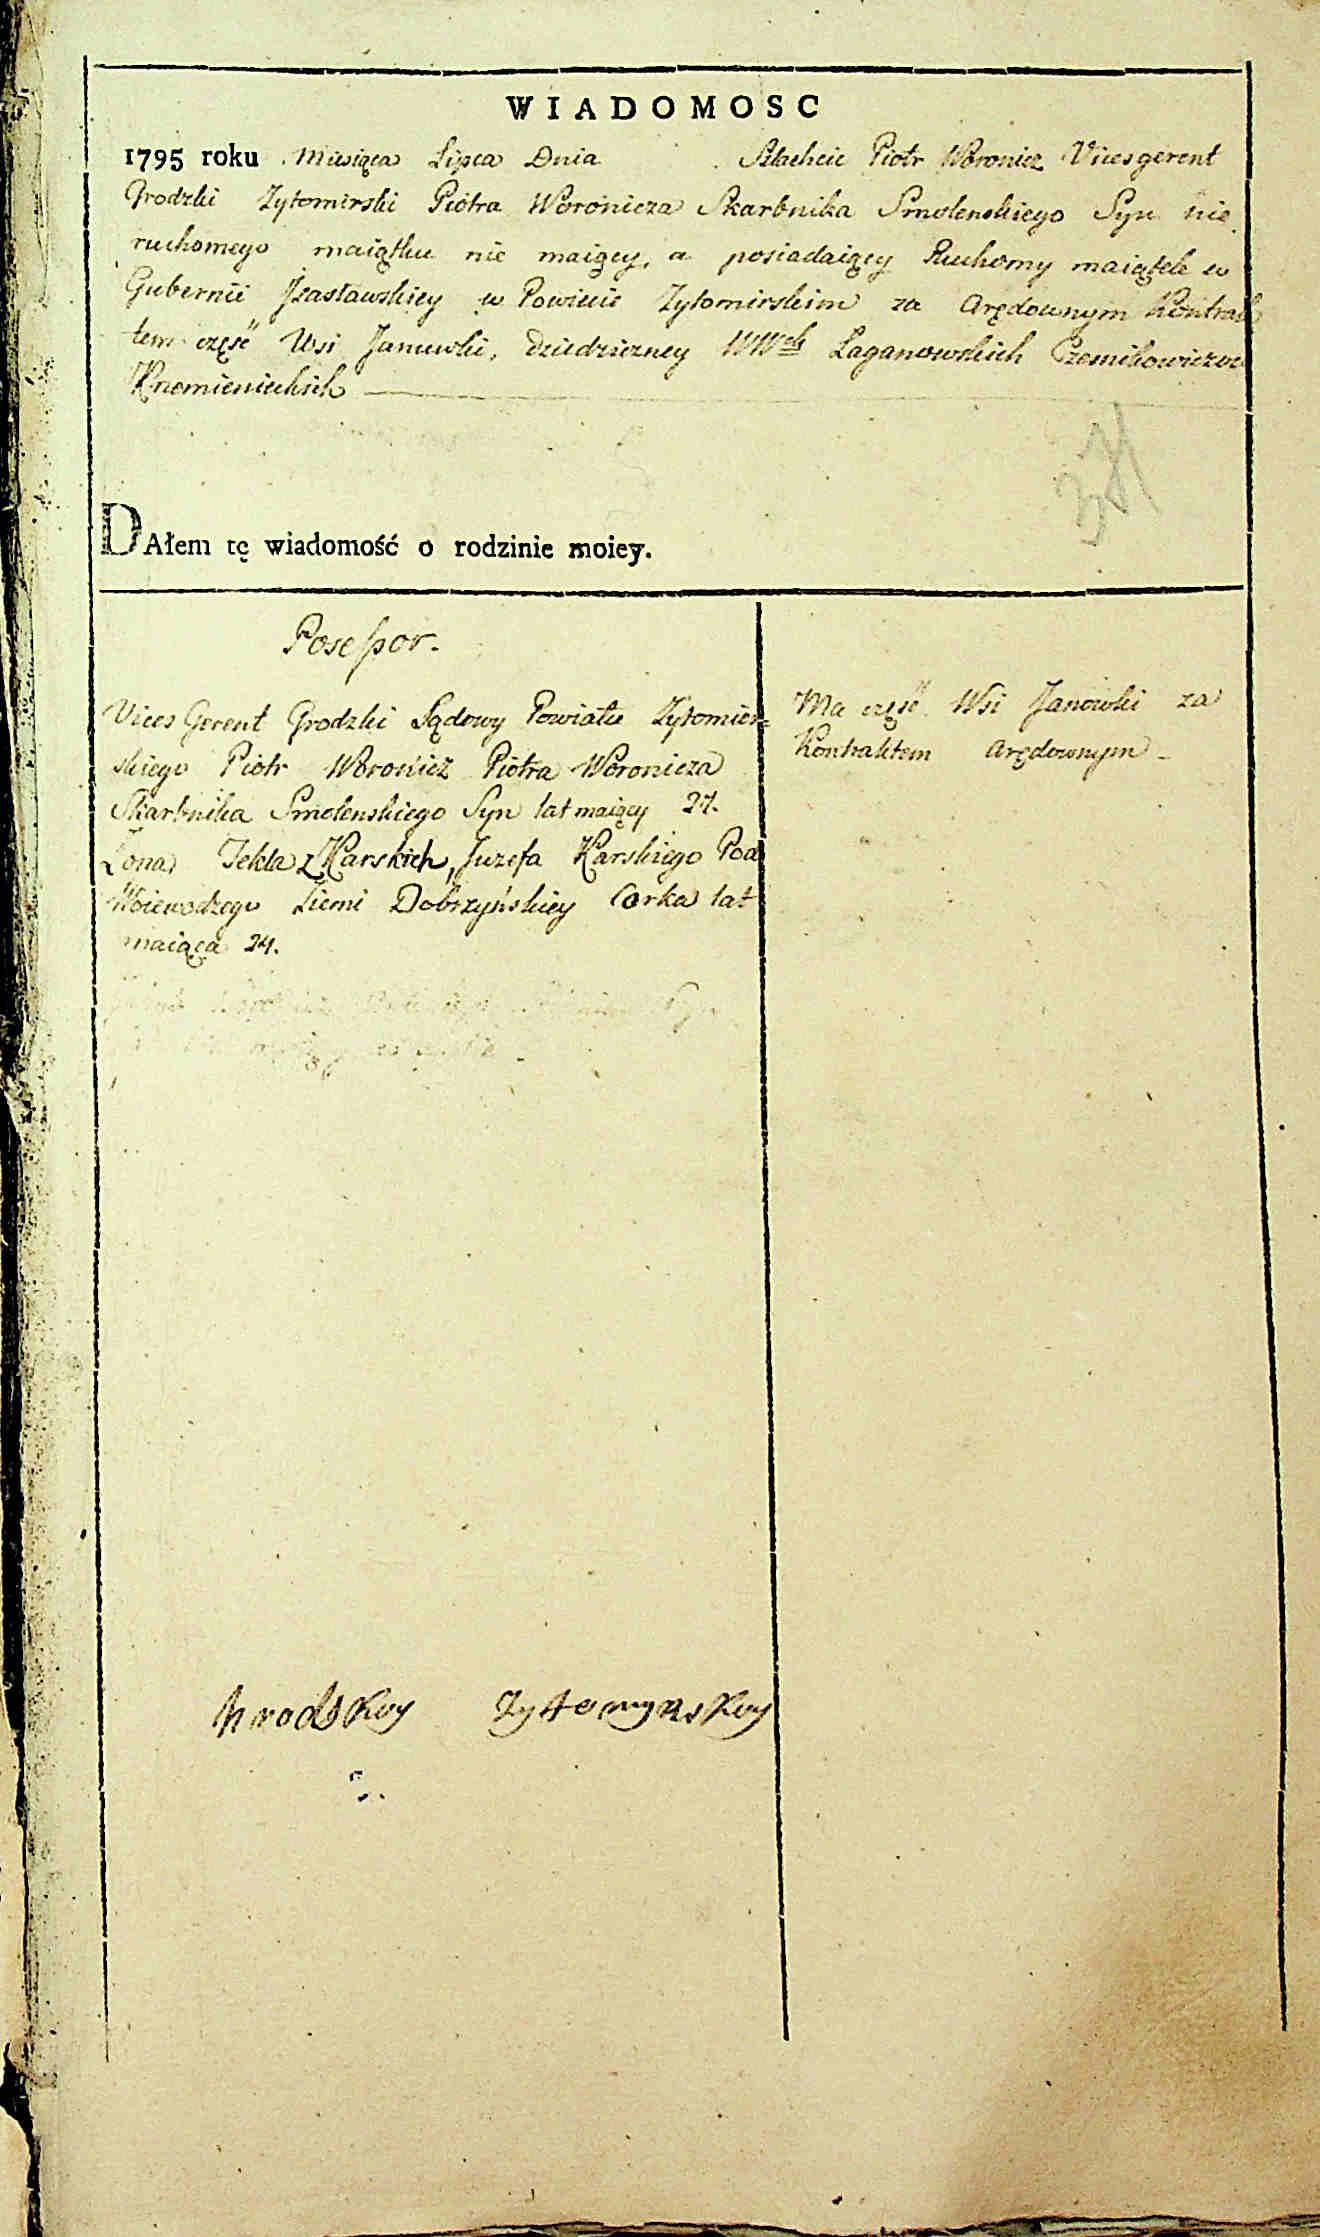 WIADOMOSC
1795 roku Miesiąca Lipca Dnia Szlachcic Piotr Woronicz Vicesgerent
Grodzki Zytomirski Piotra Woronicza Skarbnika Smolenskiego Syn nie
ruchomego maiątku nie maiący, a posiadaiący Ruchomy maiątek w
Gubernii Jzasławskiey w Powiecie Zytomirskim za Arędownym Kontrak
tem część Wsi Januwki, dziedziczney WWch Laganowskich
Krzemienieckich
34
DAłem tę wiadomość o rodzinie moiey.
Posessor.
Vices Gerent Grodzki Sądowy Powiatu Zytomier=
skiego Piotr Woronicz Piotra Woronicza
Skarbnika Smolenskiego Syn lat maiący 27.
Zona Tekla z Karskich, Juzefa Karskiego Pod
Woiewodzego Ziemi Dobrzyńskiey Corka lat
maiąca 24.
Ma część Wsi Janowki za
Kontraktem Arędownym -
Hrodskoy Zyttomyrskoy